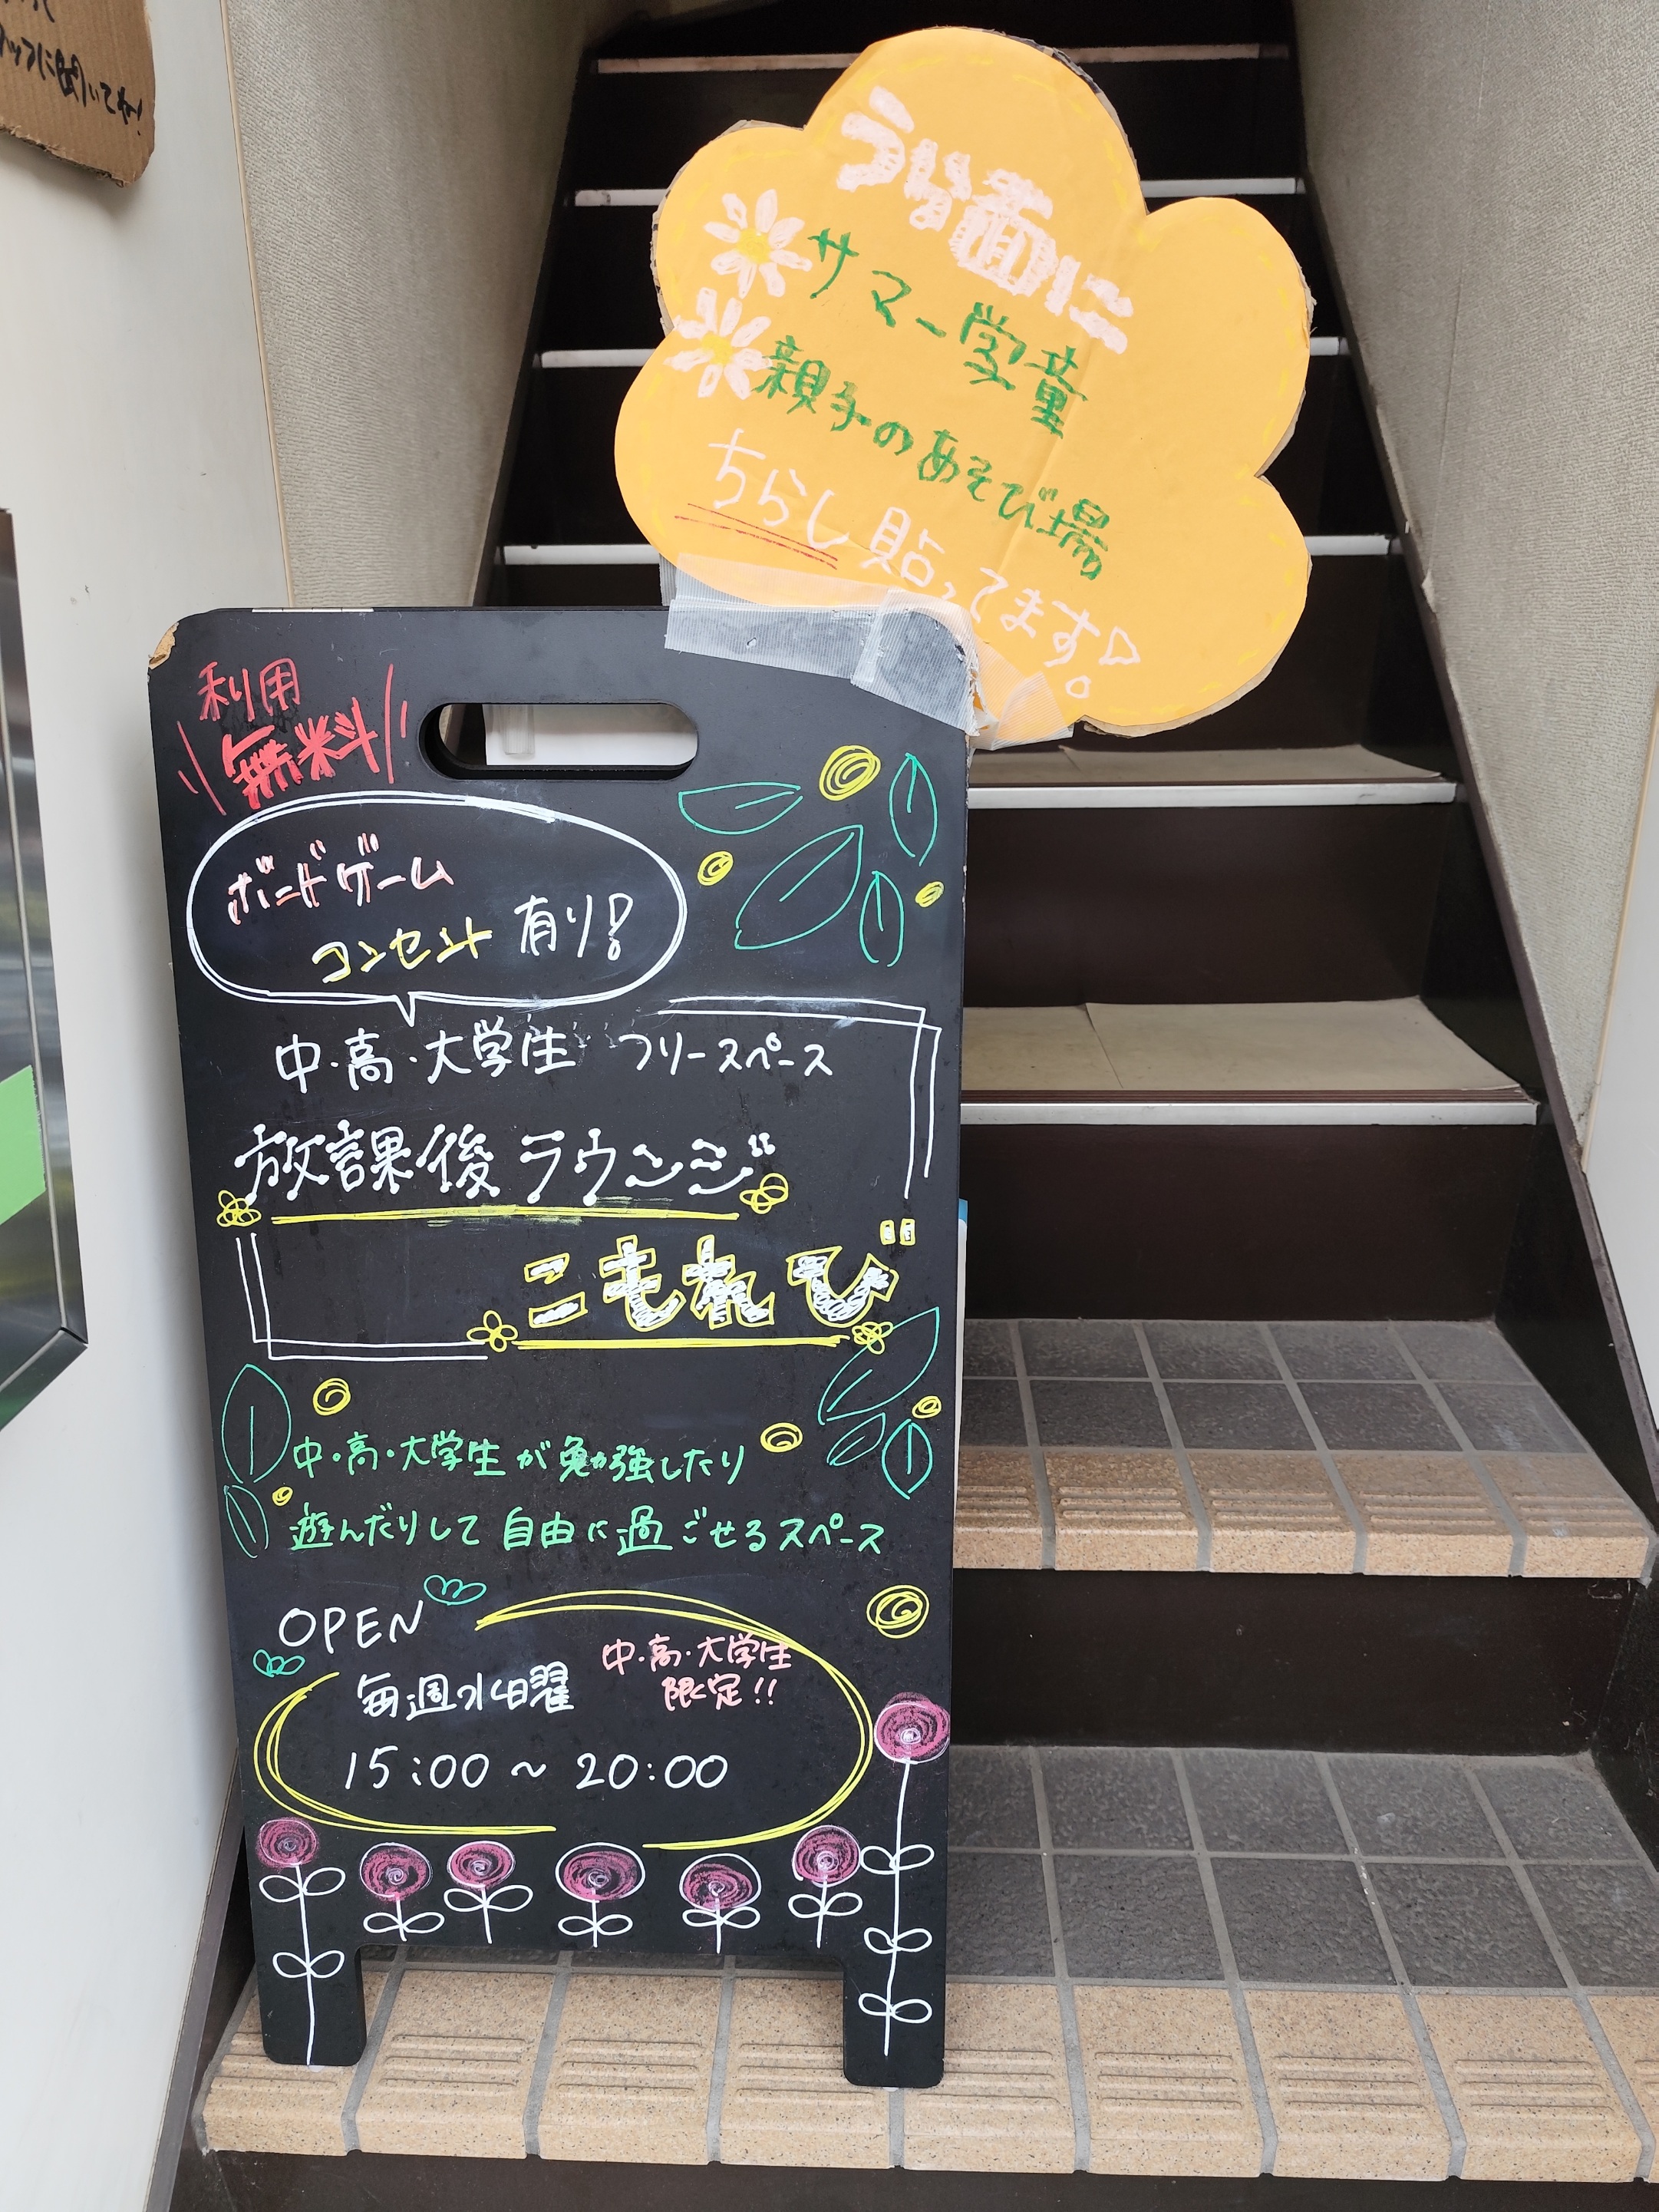 ッフに聞いてね!
うら面に
サマー学童
親子のあそび場
ちらし貼ってます!。
利用
無料
ボードゲーム
コンセント 有り!
中・高・大学生 フリースペース
放課後ラウンジ
こもれび
中・高・大学生が勉強したり
遊んだりして自由に過ごせるスペース
OPEN
毎週水曜
中・高・大学生
限定!!
15:00~20:00